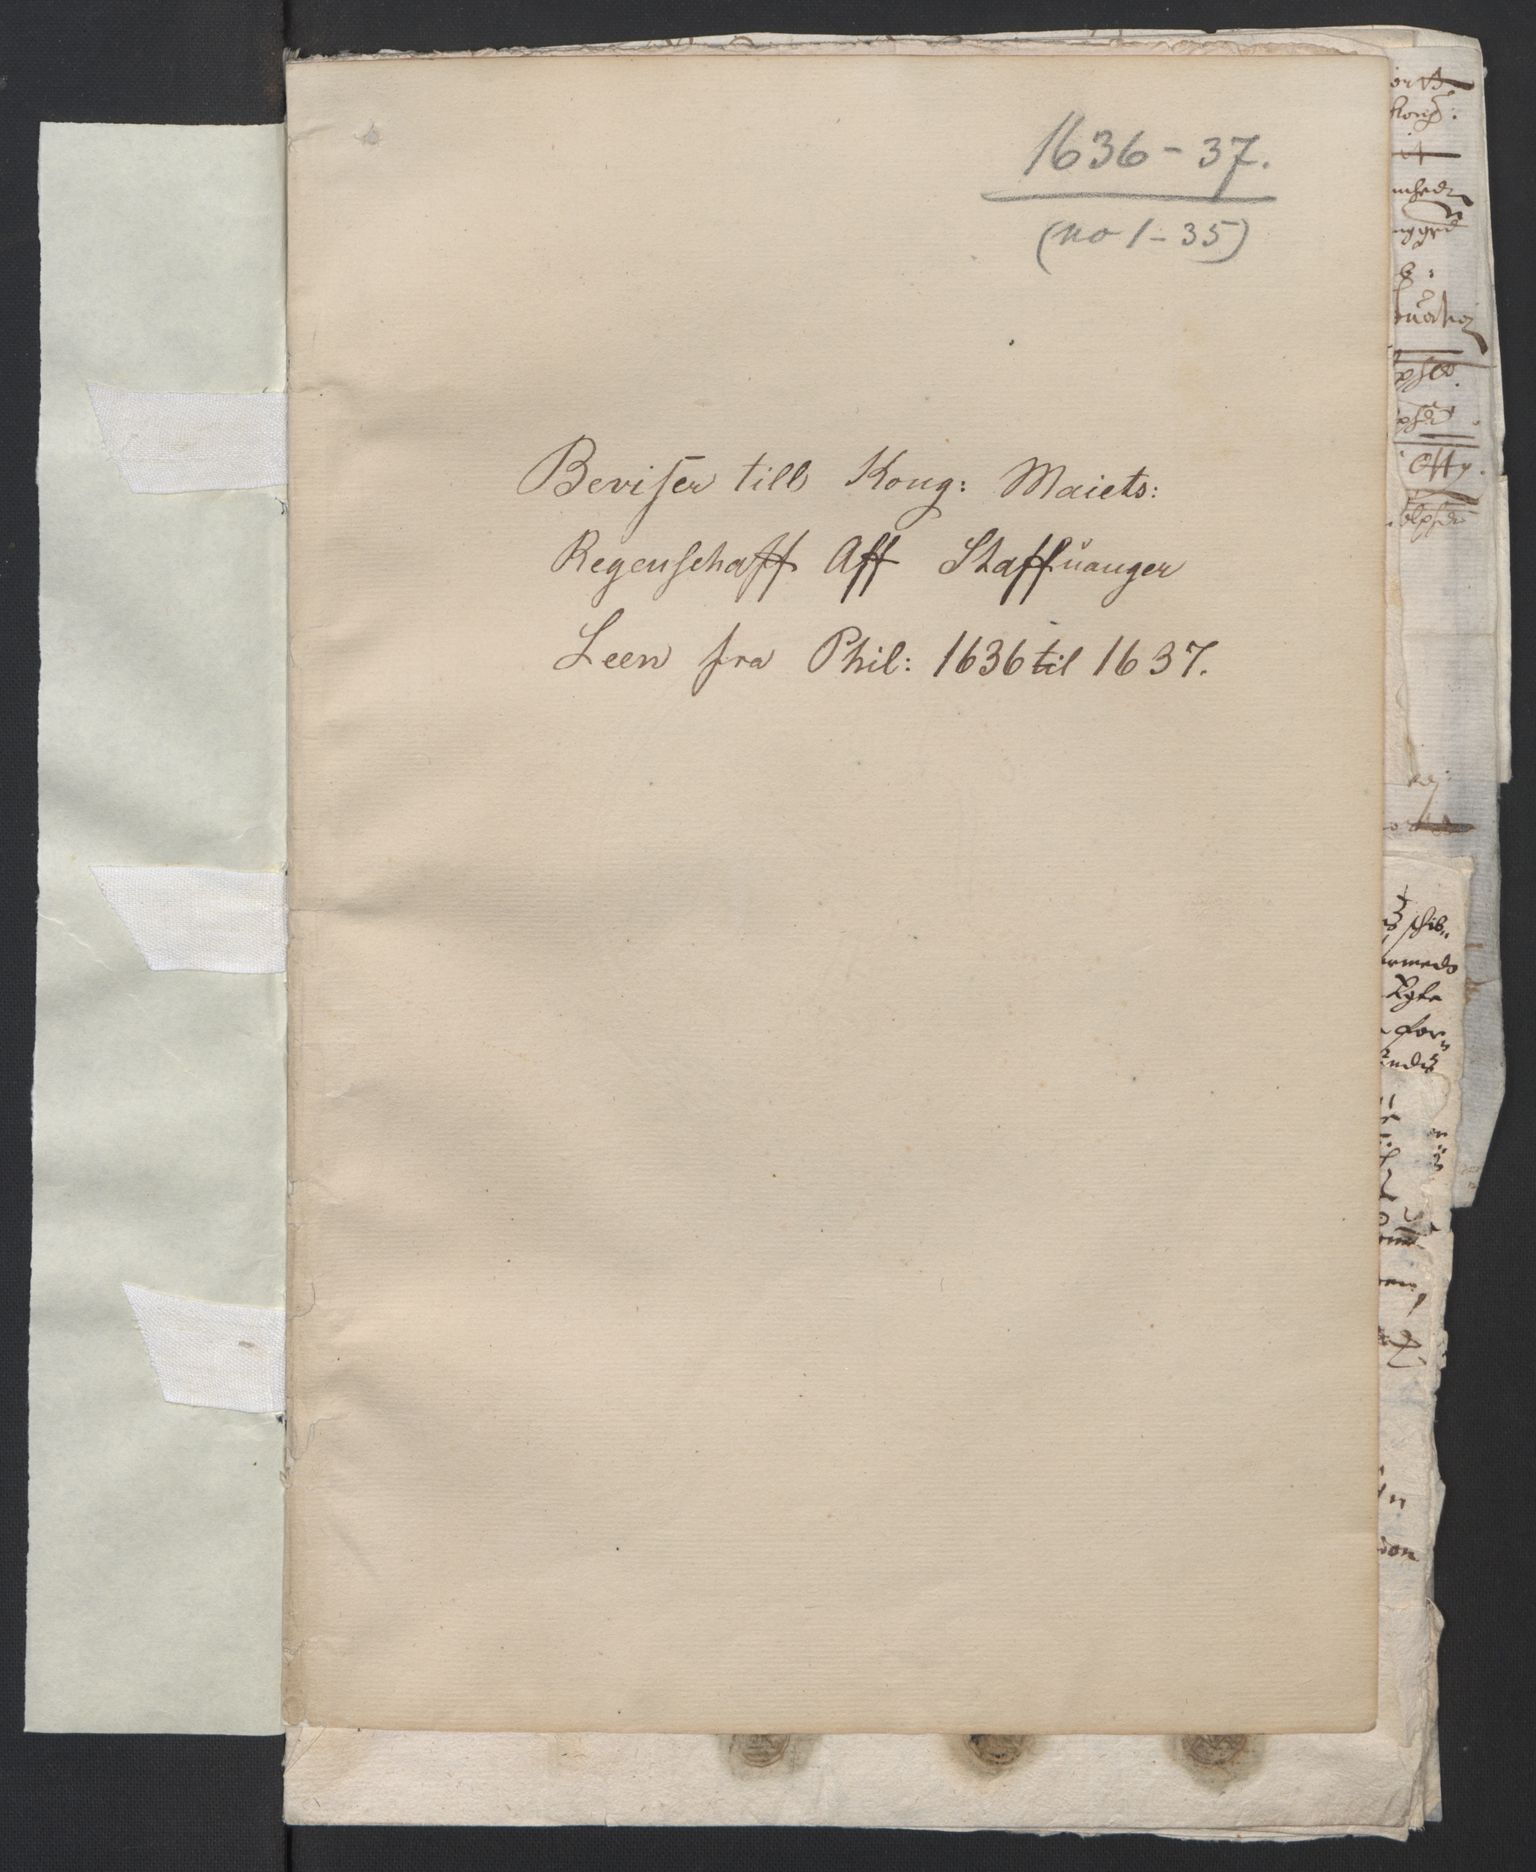 1636-37.
(no 1-35)
Beviser till Kong: Maiets:
Regenschaff Aff Staffuanger
Leen fra Phil: 1636 til 1637.